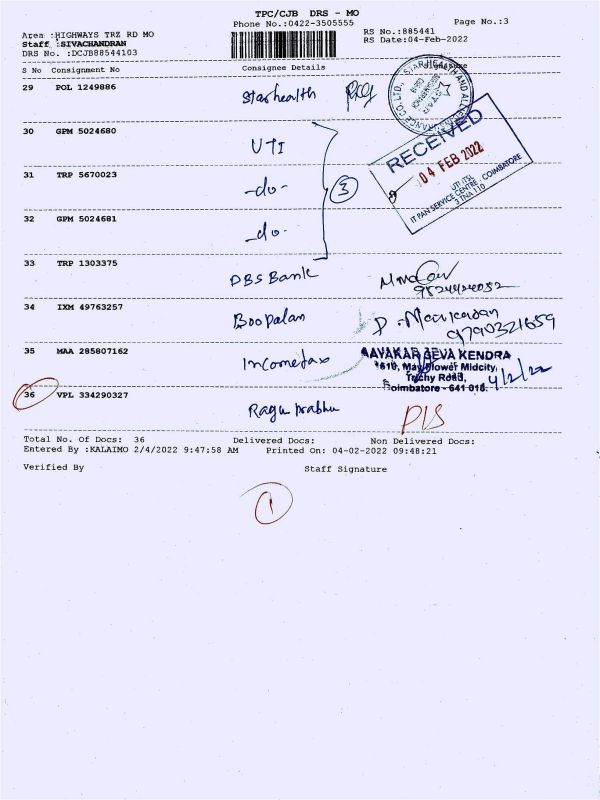 TPC/CJB DRS - MO
Phone No.:0422-3505555
Page No.:3
Area :HIGHWAYS TRZ RD MO
RS No.:885441
Staff :SIVACHANDRAN
RS Date:04-Feb-2022
DRS No. :DCJB88544103
S No Consignment No Consignee Details Signature
29 POL 1249886 Starhealth
RECEIVED
04 FEB 2022
UTI ITSL
IT PAN SERVICE CENTRE - COIMBATORE
3 TNA 110
30 GPM 5024680 UTI
31 TRP 5670023 -do- 3
32 GPM 5024681 -do-
33 TRP 1303375 DBS Bank
34 IXM 49763257 Boopalan D. Manikandan
9790321659
35 MAA 285807162 Incometax
AAVAKAR SEVA KENDRA
"610, May Flower Midcity,
Trichy Road,
Coimbatore - 641 018. 4/2/22
36 VPL 334290327 Ragu prabhu D/S
Total No. Of Docs: 36 Delivered Docs: Non Delivered Docs:
Entered By :KALAIMO 2/4/2022 9:47:58 AM Printed On: 04-02-2022 09:48:21
Verified By Staff Signature
1